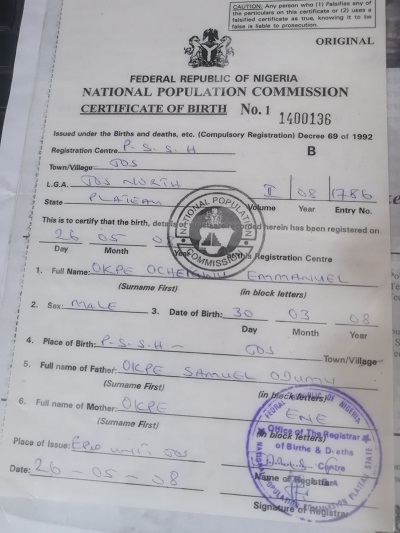 CAUTION: Any person who (1) Falsifies any of
the particulars on this certificate or (2) uses a
falsified certificate as true, knowing it to be
false is liable to prosecution.
ORIGINAL
FEDERAL REPUBLIC OF NIGERIA
NATIONAL POPULATION COMMISSION
CERTIFICATE OF BIRTH No. 1 1400136
Issued under the Births and deaths, etc. (Compulsory Registration) Decree 69 of 1992
Registration Centre P.S.S.H B
Town/Village JOS
L.G.A. JOS NORTH II 08 1786
State PLATEAU Volume Year Entry No.
This is to certify that the birth, details recorded herein has been registered on
26 05
Day Month Year at this Registration Centre
1. Full Name: OKPE EMMANUEL
(Surname First) (in block letters)
2. Sex: MALE 3. Date of Birth: 30 03 08
Day Month Year
4. Place of Birth: P.S.S.H - JOS Town/Village
5. Full name of Father: OKPE SAMUEL ODUMU
(Surname First) (in block letters)
6. Full name of Mother: OKPE ENE
(Surname First) (in block letters)
Place of Issue: JOS
Date: 26 - 05 - 08
Name of Registrar
Signature of Registrar
NATIONAL POPULATION
COMMISSION
Office of The Registrar
of Births & Deaths
Centre
NATIONAL POPULATION COMMISSION PLATEAU STATE